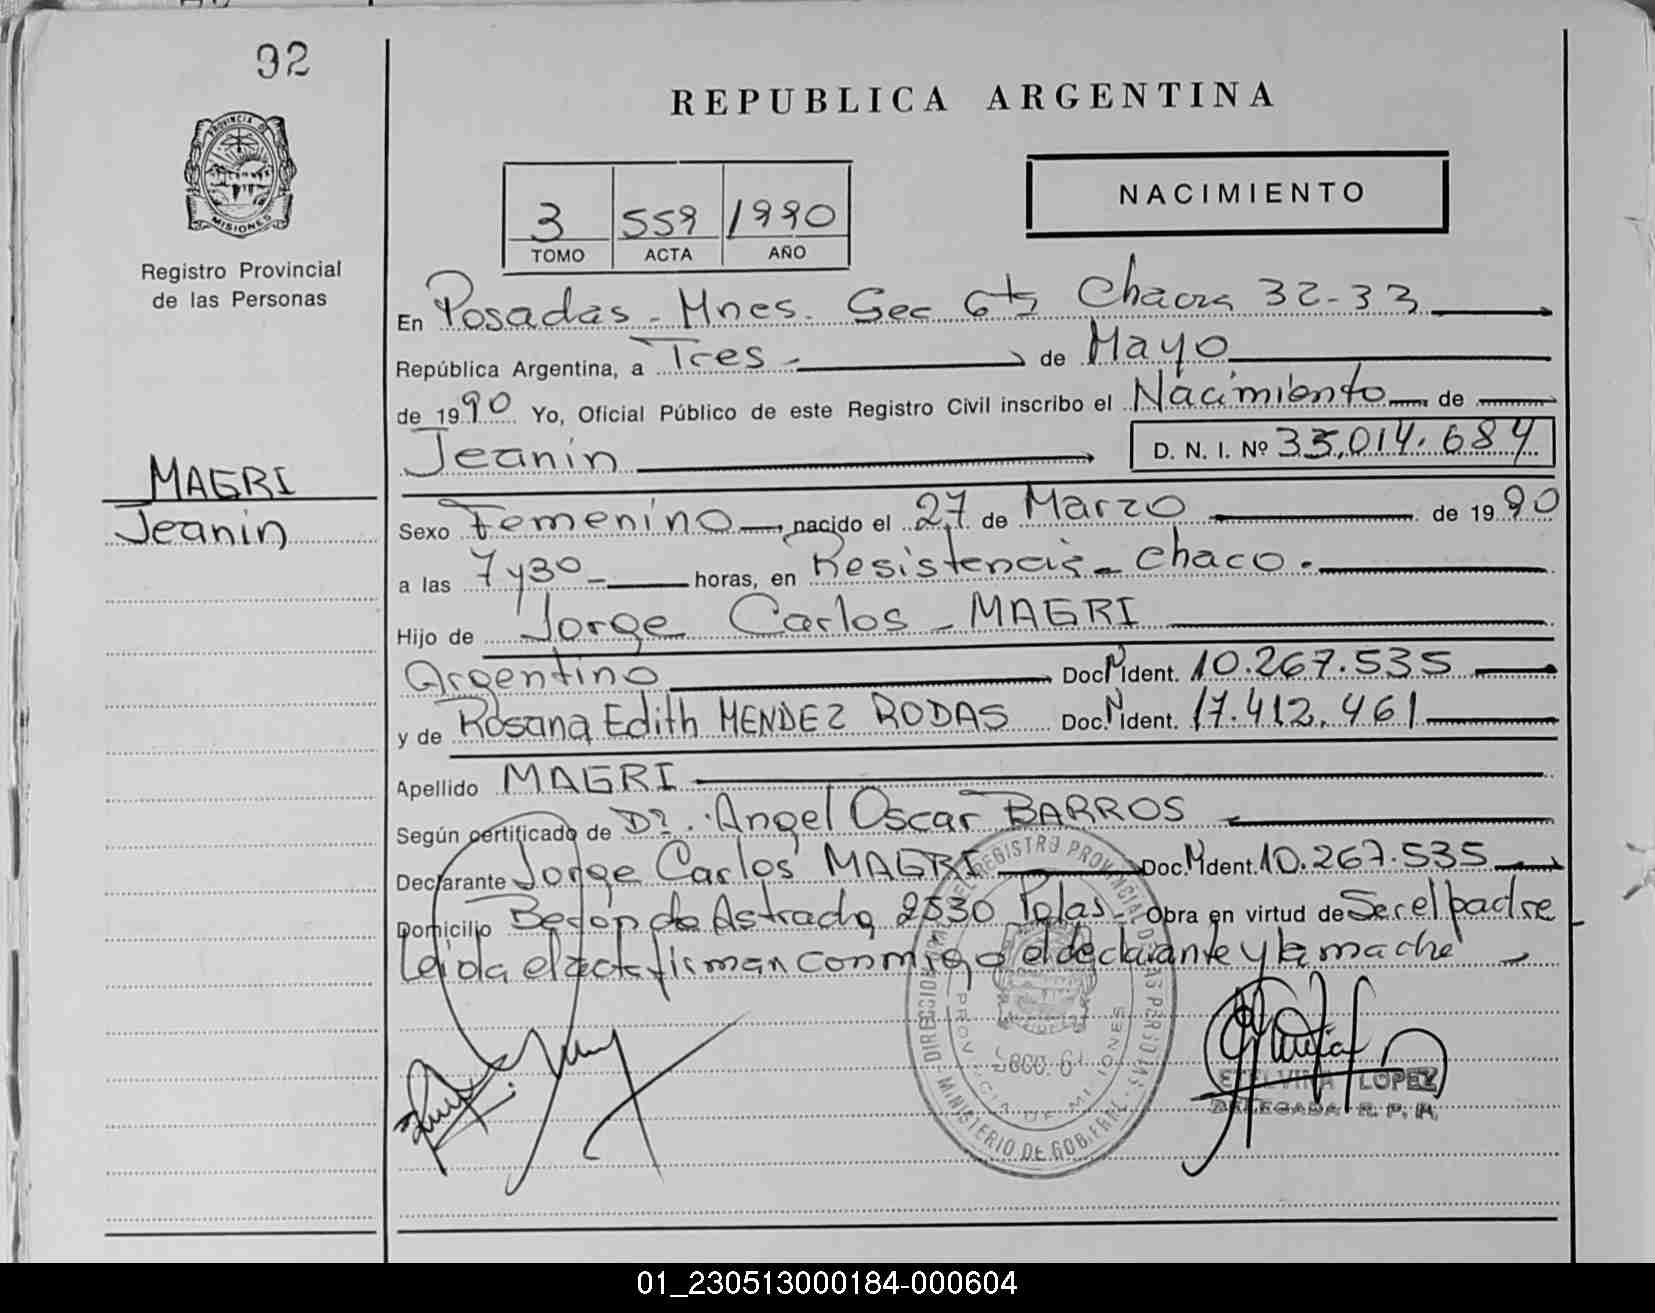 92
REPUBLICA ARGENTINA
PROVINCIA DE
MISIONES
Registro Provincial
de las Personas
3 559 1990
TOMO ACTA AÑO
NACIMIENTO
En Posadas - Mnes. Sec 6ta Chacra 32-33
República Argentina, a Tres - de Mayo
de 1990 Yo, Oficial Público de este Registro Civil inscribo el Nacimiento de
Jeanin D. N. I. Nº 35.014.684
MAGRI
Jeanin
Sexo Femenino, nacido el 27 de Marzo de 1990
a las 7 y 30 - horas, en Resistencia - Chaco.
Hijo de Jorge Carlos - MAGRI
Argentino Doc. N Ident. 10.267.535
y de Rosana Edith MENDEZ RODAS Doc. N Ident. 17.412.461
Apellido MAGRI
Según certificado de Dr. Angel Oscar BARROS
Declarante Jorge Carlos MAGRI Doc. N Ident. 10.267.535
Domicilio Beron de Astrada 2530 Pdas - Obra en virtud de Ser el padre
Leida el acta firman conmigo el declarante y la madre
REGISTRO PROVINCIAL DE LAS PERSONAS
MINISTERIO DE GOBIERNO
PROVINCIA DE MISIONES
ETELVINA LOPEZ
DELEGADA R. P. P.
01_230513000184-000604